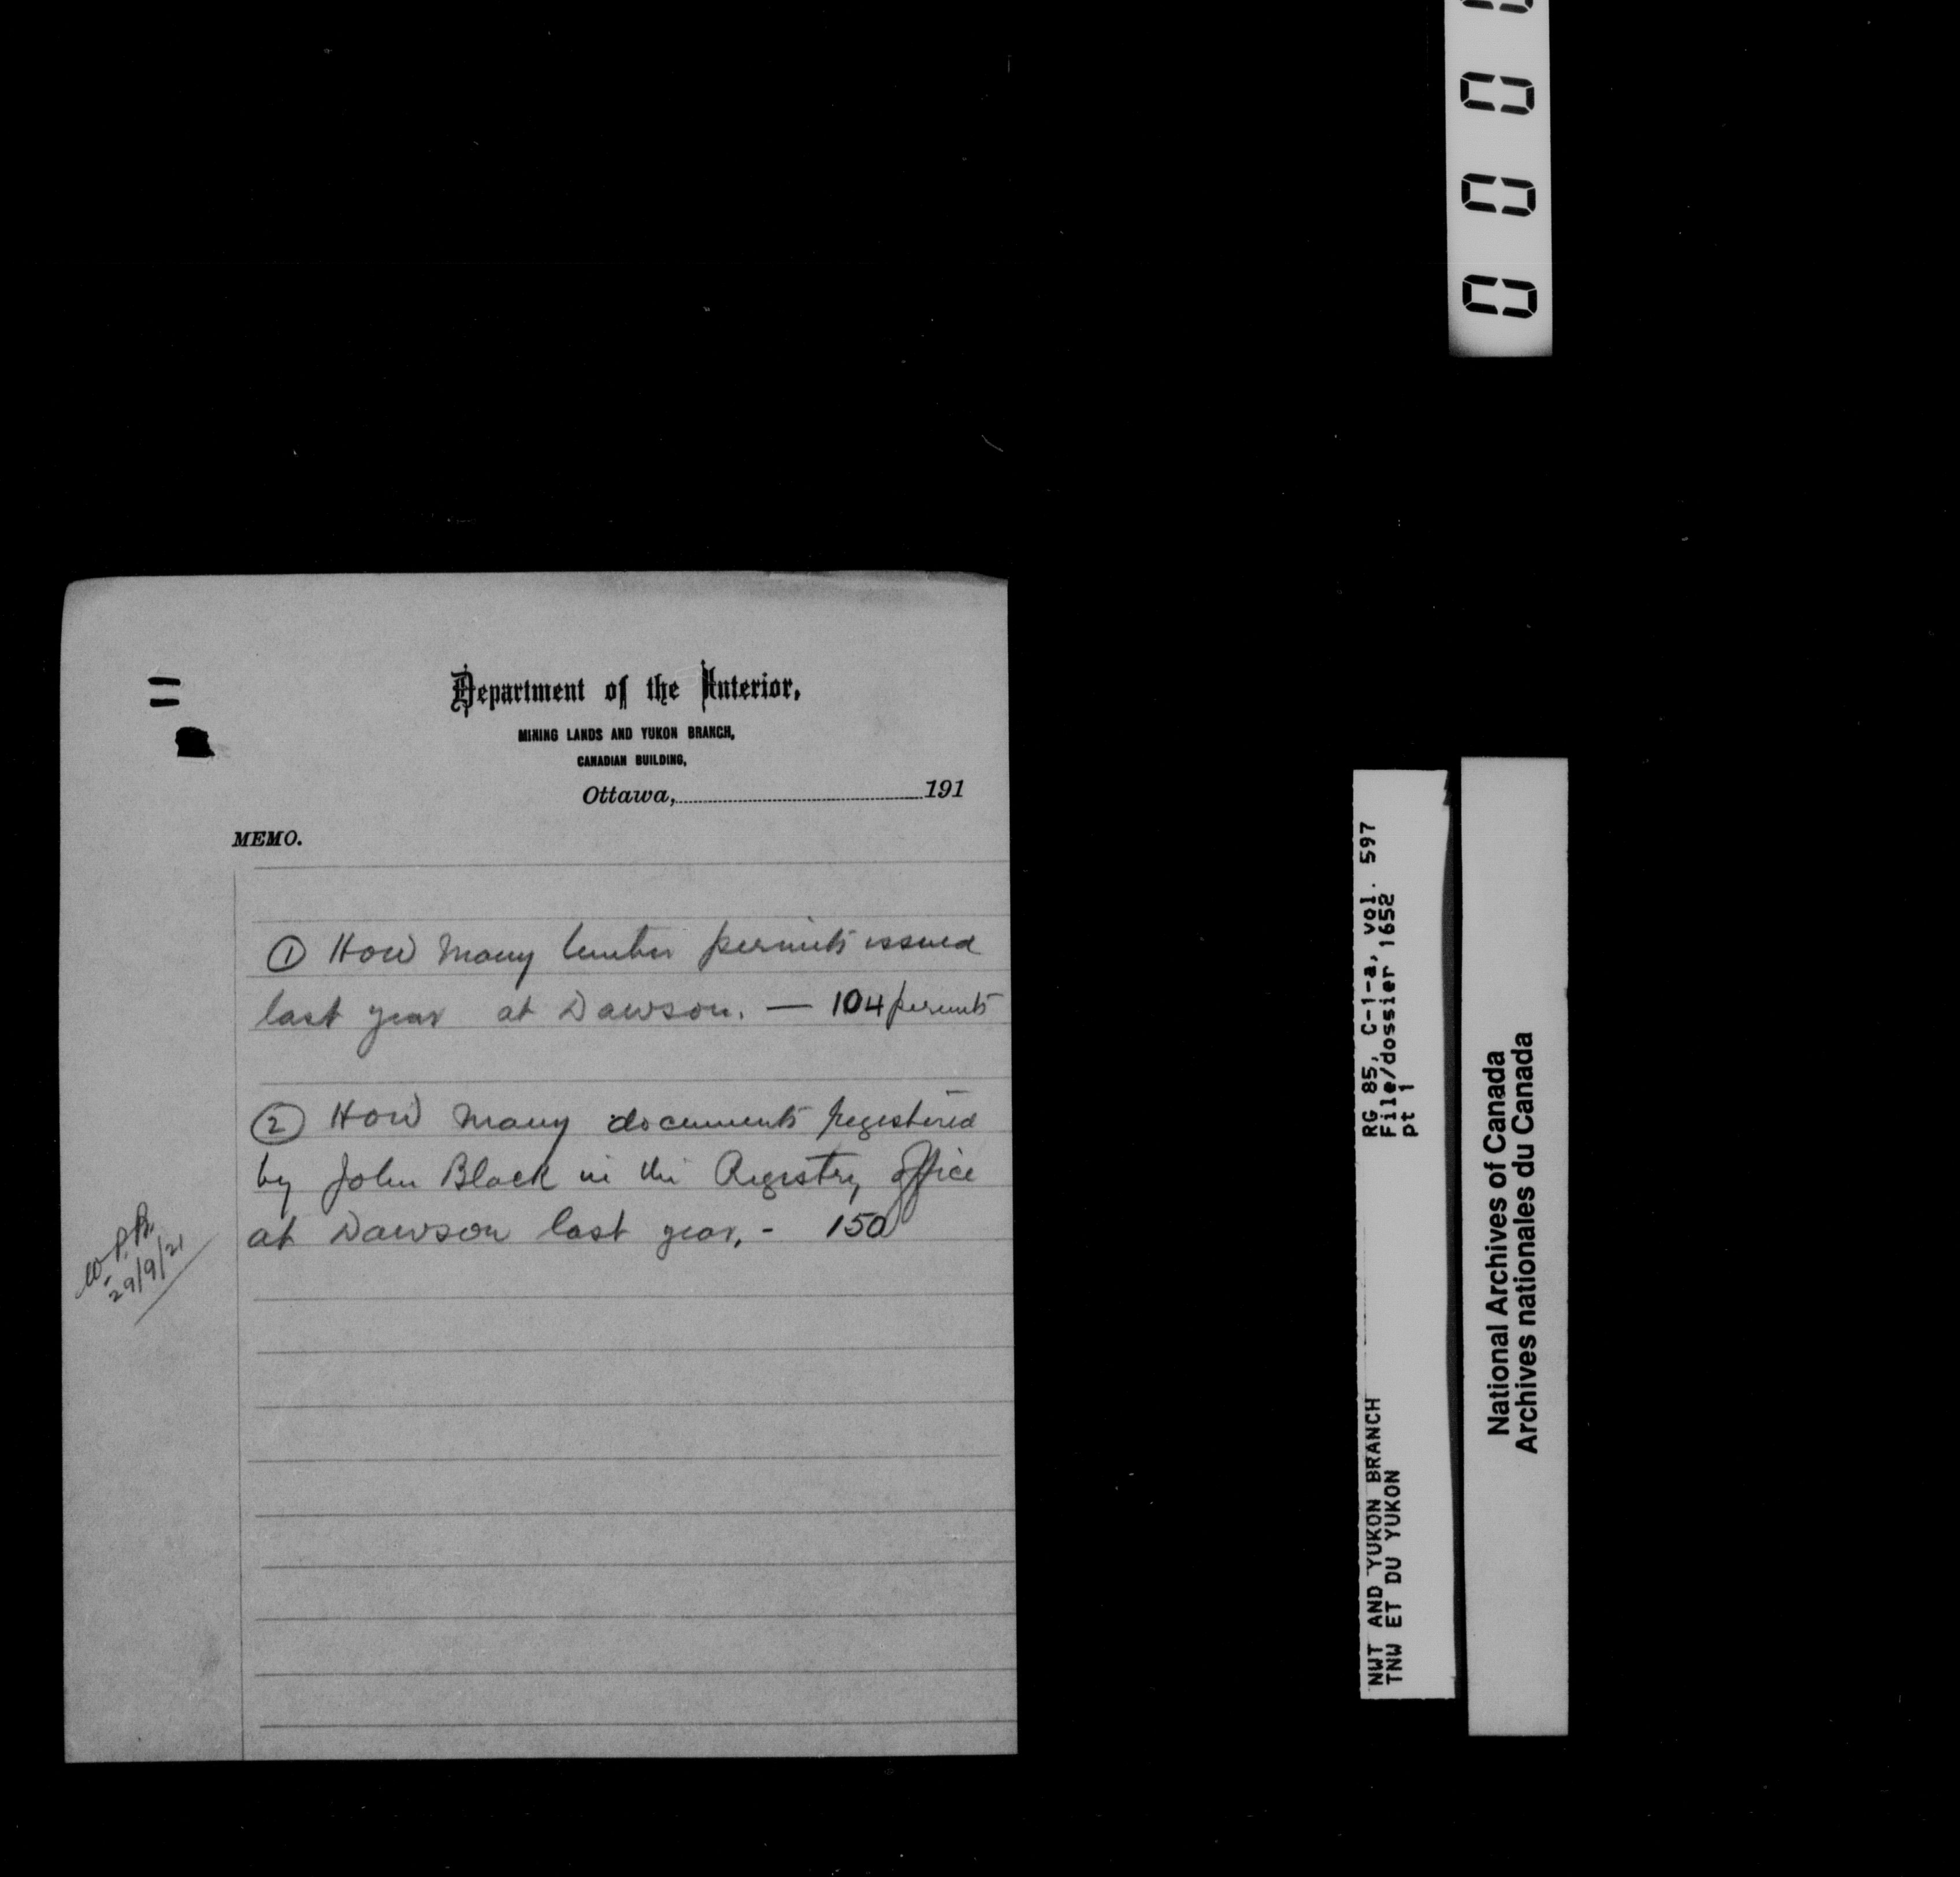 Department of the Interior,
MINING LANDS AND YUKON BRANCH,
CANADIAN BUILDING,
Ottawa, 191
MEMO.
① How many timber permits issued
last year at Dawson. — 104 permits
② How many documents registered
by John Black in the Registry Office
at Dawson last year. - 150
W.P.B.
29/9/21
0 0 0
RG 85, C-1-a, vol. 597
File/dossier 1652
pt 1
NWT AND YUKON BRANCH
TNW ET DU YUKON
National Archives of Canada
Archives nationales du Canada